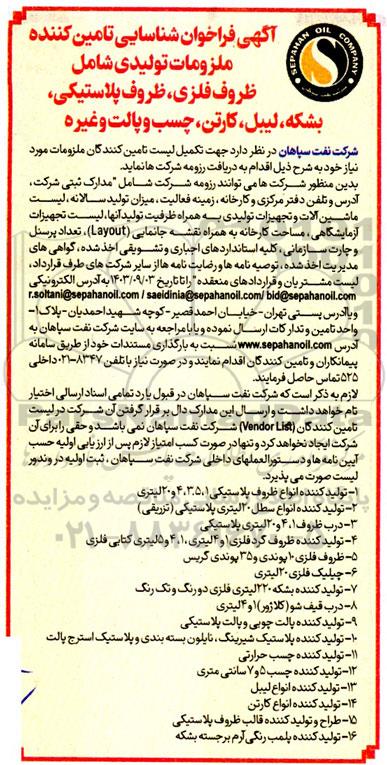 SEPAHAN OIL COMPANY
آگهی فراخوان شناسایی تامین کننده
ملزومات تولیدی شامل
ظروف فلزی، ظروف پلاستیکی،
بشکه، لیبل، کارتن، چسب و پالت و غیره
شرکت نفت سپاهان در نظر دارد جهت تکمیل لیست تامین کنندگان ملزومات مورد
نیاز خود به شرح ذیل اقدام به دریافت رزومه شرکت ها نماید.
بدین منظور شرکت ها می توانند رزومه شرکت شامل "مدارک ثبتی شرکت،
آدرس و تلفن دفتر مرکزی و کارخانه، زمینه فعالیت، میزان تولید سالانه، لیست
ماشین آلات و تجهیزات تولیدی به همراه ظرفیت تولید آنها، لیست تجهیزات
آزمایشگاهی، مساحت کارخانه به همراه نقشه جانمایی (Layout)، تعداد پرسنل
و چارت سازمانی، کلیه استانداردهای اجباری و تشویقی اخذ شده، گواهی های
مدیریت اخذ شده، توصیه نامه ها و رضایت نامه ها از سایر شرکت های طرف قرارداد،
لیست مشتریان و قراردادهای منعقده" را تا تاریخ ۱۴۰۳/۰۹/۰۳ به آدرس الکترونیکی
r.soltani@sepahanoil.com / saeidinia@sepahanoil.com/ bid@sepahanoil.com
و یا آدرس پستی تهران-خیابان احمد قصیر-کوچه شهید احمدیان-پلاک ۱-
واحد تامین و تدارکات ارسال نموده و یا با مراجعه به سایت شرکت نفت سپاهان به
آدرس www.sepahanoil.com نسبت به بارگذاری مستندات خود از طریق سامانه
پیمانکاران و تامین کنندگان اقدام نمایند و در صورت نیاز با تلفن ۸۳۴۷-۰۲۱ داخلی
۵۲۵ تماس حاصل فرمایند.
لازم به ذکر است که شرکت نفت سپاهان در قبول یا رد تمامی اسناد ارسالی اختیار
تام خواهد داشت و ارسال این مدارک دال بر قرار گرفتن آن شرکت در لیست
تامین کنندگان (Vendor List) شرکت نفت سپاهان نمی باشد و حقی را برای آن
شرکت ایجاد نخواهد کرد و تنها در صورت کسب امتیاز لازم پس از ارزیابی اولیه حسب
آیین نامه ها و دستورالعملهای داخلی شرکت نفت سپاهان، ثبت اولیه در وندور
لیست صورت می پذیرد.
۱-تولید کننده انواع ظروف پلاستیکی ۱، ۳.۵، ۴ و ۲۰ لیتری
۲-تولید کننده انواع سطل ۲۰ لیتری پلاستیکی (تزریقی)
۳-درب ظروف ۱، ۴ و ۲۰ لیتری پلاستیکی
۴-تولید کننده ظروف گرد فلزی ۱ و ۴ لیتری، ۱، ۴ و ۵ لیتری کتابی فلزی
۵-ظروف فلزی ۱۰ پوندی و ۳۵ پوندی گریس
۶-چیلیک فلزی ۲۰ لیتری
۷-تولید کننده بشکه ۲۲۰ لیتری فلزی دو رنگ و تک رنگ
۸-درب قیف شو (کلاژور) ۱ و ۴ لیتری
۹-تولید کننده پالت چوبی و پالت پلاستیکی
۱۰-تولید کننده پلاستیک شیرینگ، نایلون بسته بندی و پلاستیک استرچ پالت
۱۱-تولید کننده چسب حرارتی
۱۲-تولید کننده چسب ۵ و ۷ سانتی متری
۱۳-تولید کننده انواع لیبل
۱۴-تولید کننده انواع کارتن
۱۵-طراح و تولید کننده قالب ظروف پلاستیکی
۱۶-تولید کننده پلمب رنگی آرم برجسته بشکه